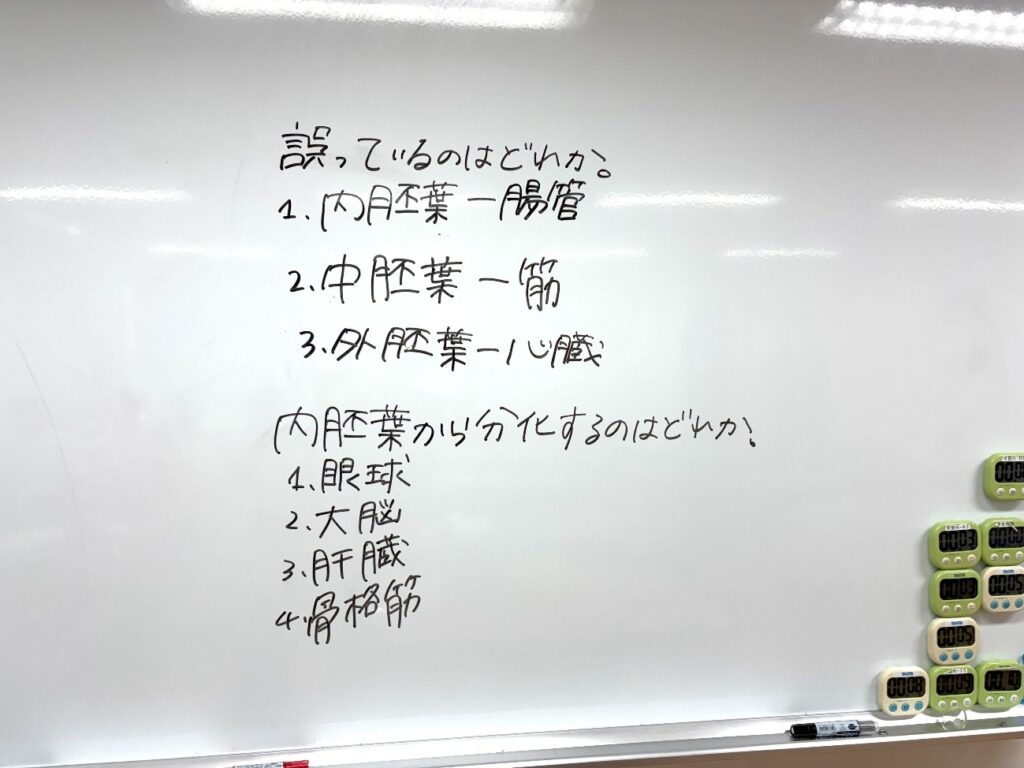 誤っているのはどれか。
1. 内胚葉ー腸管
2. 中胚葉ー筋
3. 外胚葉ー心臓
内胚葉から分化するのはどれか。
1. 眼球
2. 大脳
3. 肝臓
4. 骨格筋